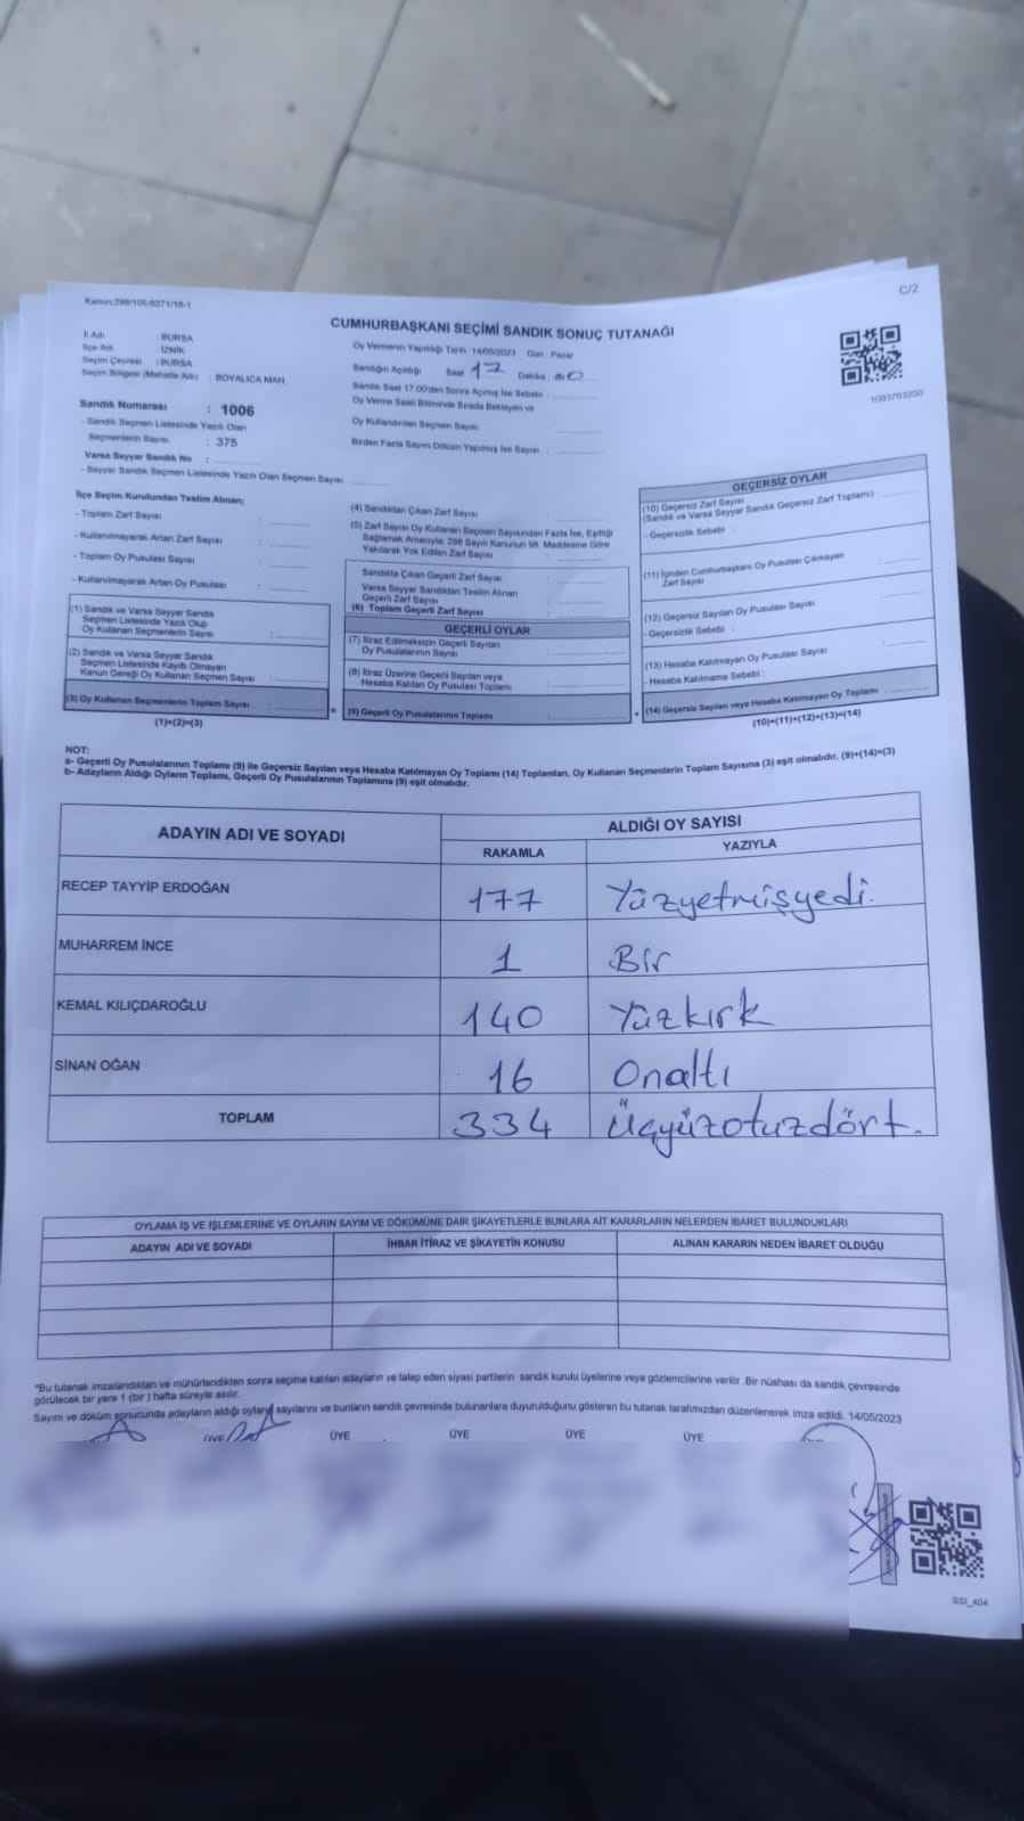 C/2
CUMHURBAŞKANI SEÇİMİ SANDIK SONUÇ TUTANAĞI
İl Adı : BURSA
İlçe Adı : İZNİK
Seçim Çevresi : BURSA
Seçim Bölgesi (Mahalle Adı) : BOYALICA MAH.
Sandık Numarası : 1006
- Sandık Seçmen Listesinde Yazılı Olan
Seçmenlerin Sayısı : 375
Varsa Seyyar Sandık No :
- Seyyar Sandık Seçmen Listesinde Yazılı Olan Seçmen Sayısı
Oy Vermenin Yapıldığı Tarih 14/05/2023 Gün : Pazar
Sandığın Açıldığı Saat 17 Dakika :
Sandık Saat 17.00'den Sonra Açılmış İse Sebebi :
Oy Verme Saati Bitiminde Sırada Bekleyen ve
Oy Kullandırılan Seçmen Sayısı
Birden Fazla Sayım Döküm Yapılmış İse Sayısı :
İlçe Seçim Kurulundan Teslim Alınan;
- Toplam Zarf Sayısı :
- Kullanılmayarak Artan Zarf Sayısı :
- Toplam Oy Pusulası Sayısı :
- Kullanılmayarak Artan Oy Pusulası :
(1) Sandık ve Varsa Seyyar Sandık
Seçmen Listesinde Yazılı Olup
Oy Kullanan Seçmenlerin Sayısı :
(2) Sandık ve Varsa Seyyar Sandık
Seçmen Listesinde Kayıtlı Olmayan
Kanun Gereği Oy Kullanan Seçmen Sayısı :
(3) Oy Kullanan Seçmenlerin Toplam Sayısı :
(1)+(2)=(3)
(4) Sandıktan Çıkan Zarf Sayısı :
(5) Zarf Sayısı Oy Kullanan Seçmen Sayısından Fazla İse, Eşitliği
Sağlamak Amacıyla, 298 Sayılı Kanunun 98. Maddesine Göre
Yakılarak Yok Edilen Zarf Sayısı
Sandıkta Çıkan Geçerli Zarf Sayısı
Varsa Seyyar Sandıktan Teslim Alınan
Geçerli Zarf Sayısı
(6) Toplam Geçerli Zarf Sayısı
GEÇERLİ OYLAR
(7) İtiraz Edilmeksizin Geçerli Sayılan
Oy Pusulalarının Sayısı
(8) İtiraz Üzerine Geçerli Sayılan veya
Hesaba Katılan Oy Pusulası Toplamı
(9) Geçerli Oy Pusulalarının Toplamı
GEÇERSİZ OYLAR
(10) Geçersiz Zarf Sayısı
(Sandık ve Varsa Seyyar Sandık Geçersiz Zarf Toplamı)
- Geçersizlik Sebebi :
(11) İçinden Cumhurbaşkanı Oy Pusulası Çıkmayan
Zarf Sayısı
(12) Geçersiz Sayılan Oy Pusulası Sayısı
- Geçersizlik Sebebi :
(13) Hesaba Katılmayan Oy Pusulası Sayısı
- Hesaba Katılmama Sebebi :
(14) Geçersiz Sayılan veya Hesaba Katılmayan Oy Toplamı
(10)+(11)+(12)+(13)=(14)
NOT:
a- Geçerli Oy Pusulalarının Toplamı (9) ile Geçersiz Sayılan veya Hesaba Katılmayan Oy Toplamı (14) Toplamları, Oy Kullanan Seçmenlerin Toplam Sayısına (3) eşit olmalıdır. (9)+(14)=(3)
b- Adayların Aldığı Oyların Toplamı, Geçerli Oy Pusulalarının Toplamına (9) eşit olmalıdır.
ADAYIN ADI VE SOYADI ALDIĞI OY SAYISI
RAKAMLA YAZIYLA
RECEP TAYYİP ERDOĞAN 177 Yüzyetmişyedi.
MUHARREM İNCE 1 Bir
KEMAL KILIÇDAROĞLU 140 Yüzkırk
SİNAN OĞAN 16 Onaltı
TOPLAM 334 Üçyüzotuzdört.
OYLAMA İŞ VE İŞLEMLERİNE VE OYLARIN SAYIM VE DÖKÜMÜNE DAİR ŞİKAYETLERLE BUNLARA AİT KARARLARIN NELERDEN İBARET BULUNDUKLARI
ADAYIN ADI VE SOYADI İHBAR İTİRAZ VE ŞİKAYETİN KONUSU ALINAN KARARIN NEDEN İBARET OLDUĞU
"Bu tutanak imzalandıktan ve mühürlendikten sonra seçime katılan adayların ve talep eden siyasi partilerin sandık kurulu üyelerine veya gözlemcilerine verilir. Bir nüshası da sandık çevresinde
görülecek bir yere 1 (bir) hafta süreyle asılır.
Sayım ve döküm sonucunda adayların aldığı oyların sayılarını ve bunların sandık çevresinde bulunanlara duyurulduğunu gösteren bu tutanak tarafımızdan düzenlenerek imza edildi. 14/05/2023
ÜYE ÜYE ÜYE ÜYE ÜYE